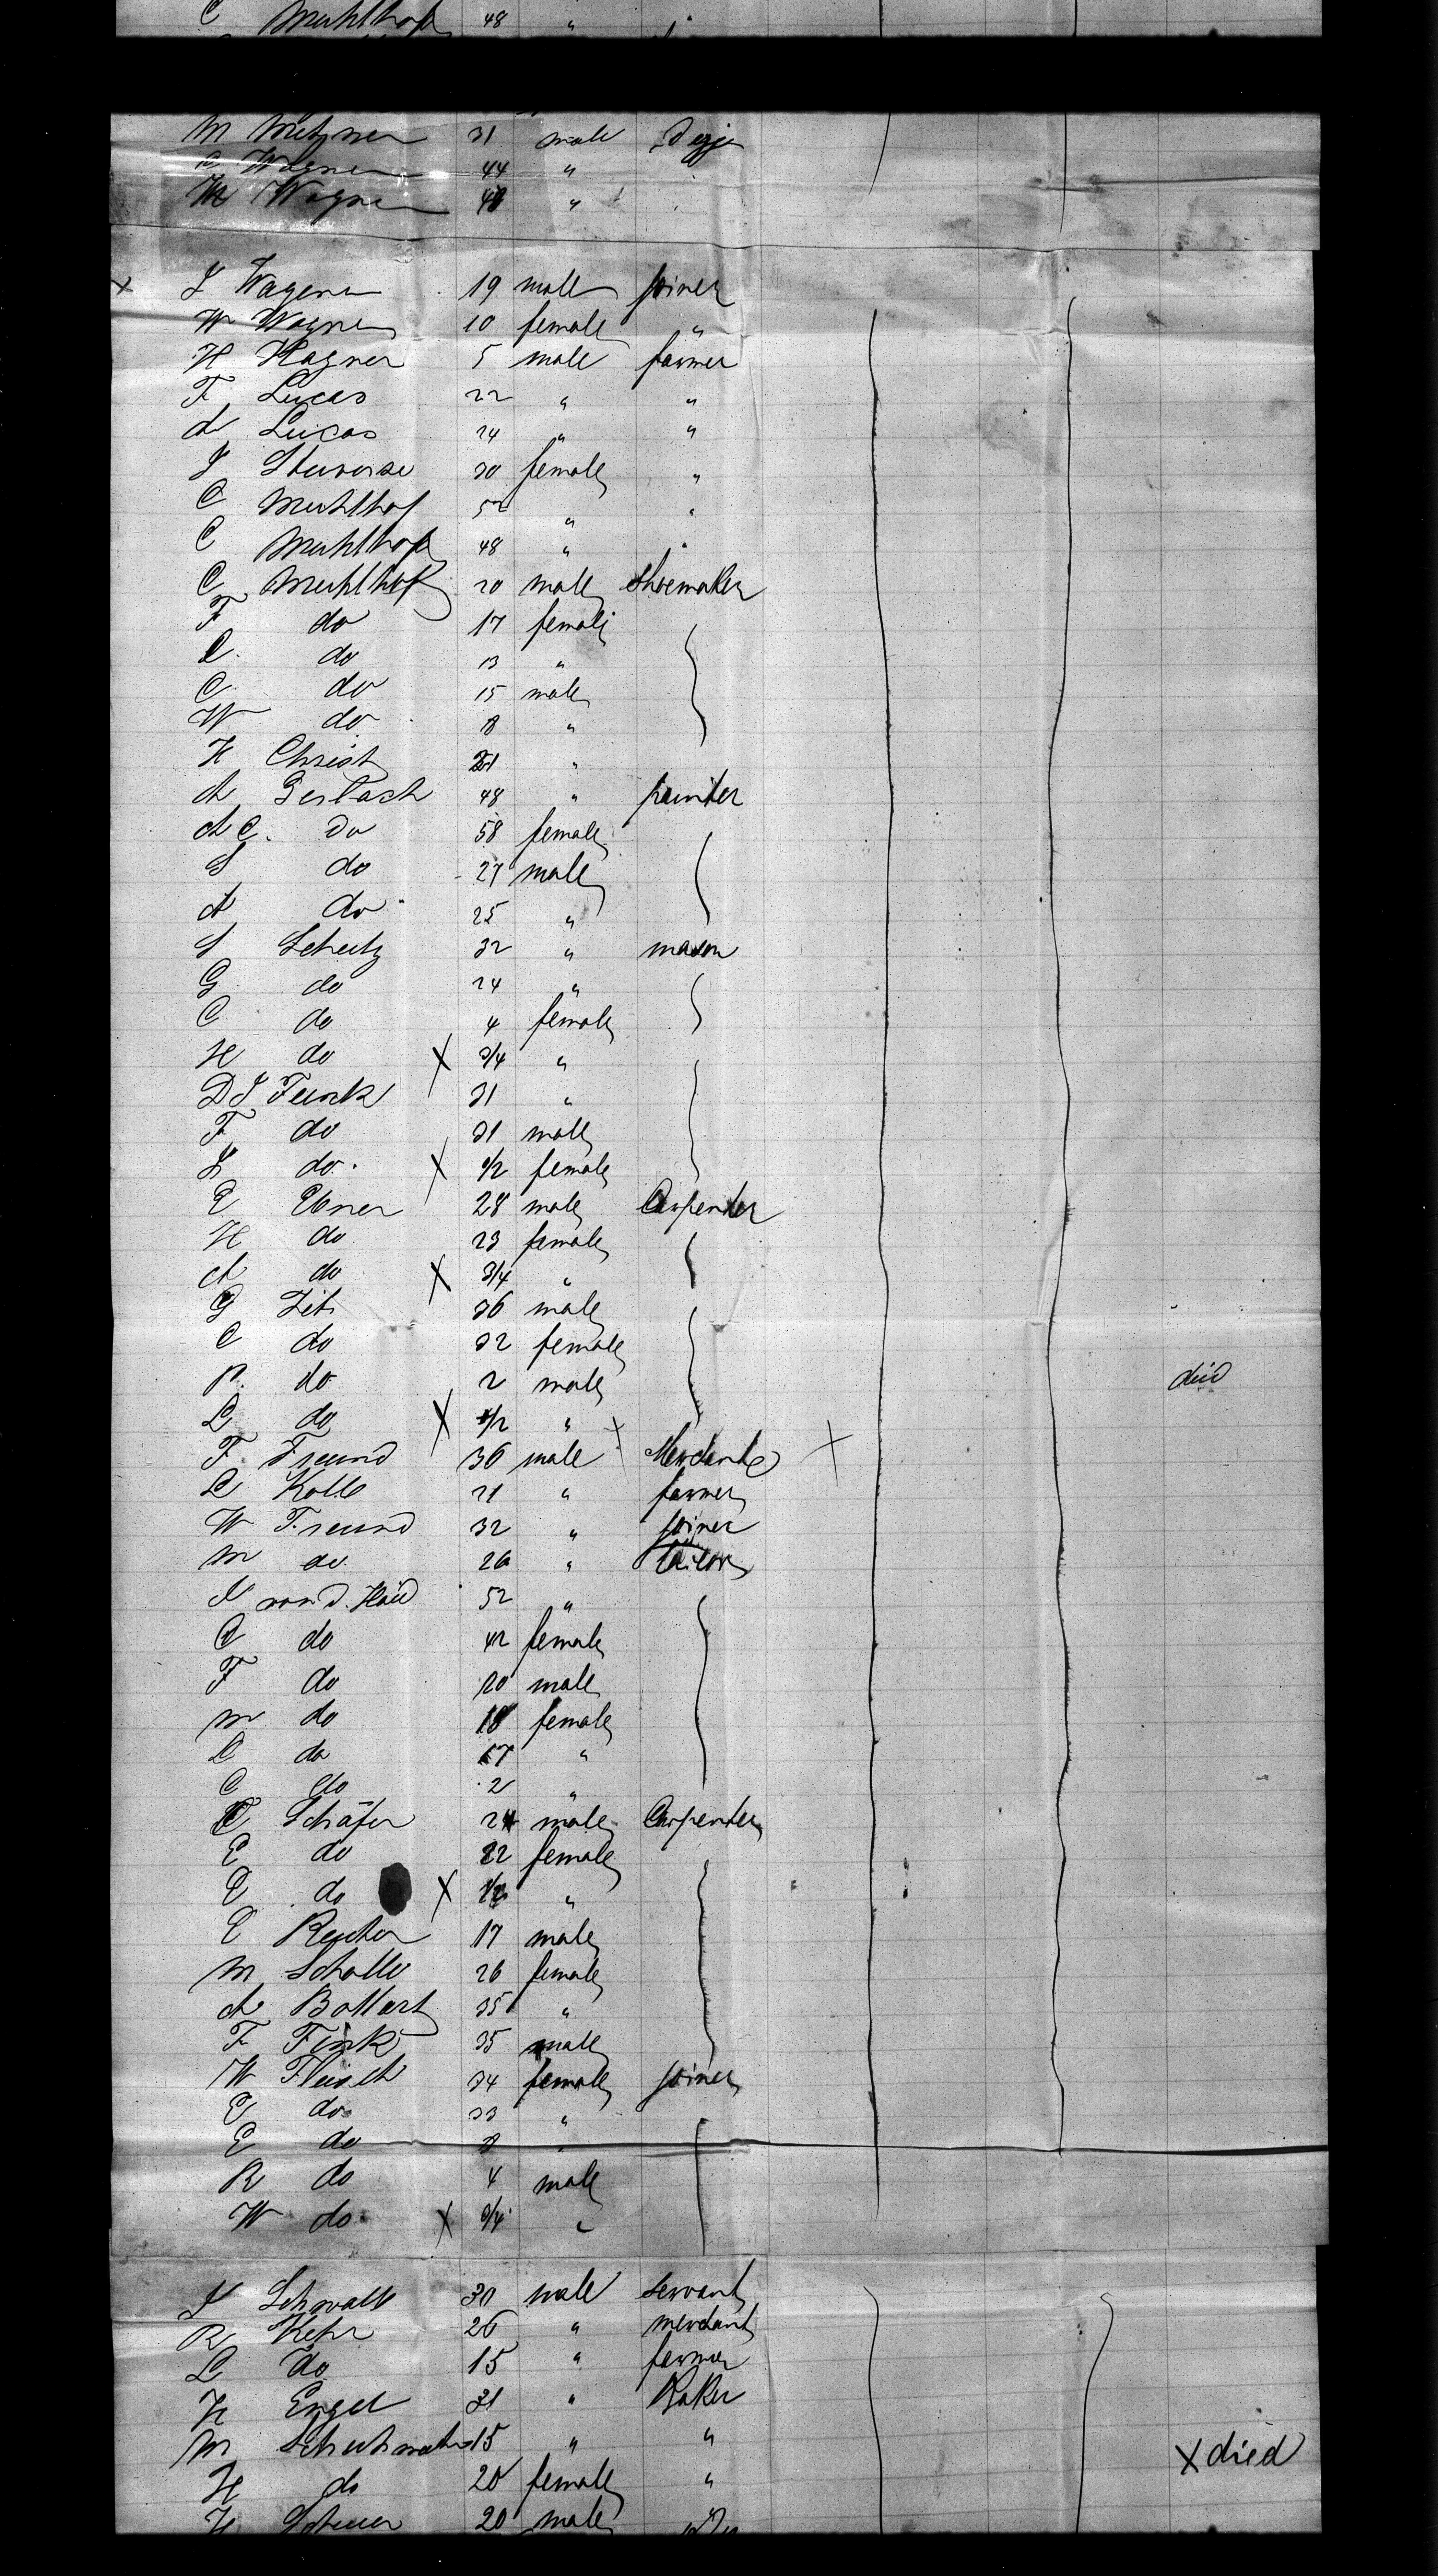 C Muhlhof 48 "
M 31 male
Wagner 44 "
M Wagner 48 "
J Wagener 19 male joiner
W Wagner 10 female "
H Hagner 5 male farmer
F Lucas 22 " "
A Lucas 24 " "
J 30 female "
C Muhlhof 52 " "
C Muhlhof 48 " "
C Muhlhof 20 male shoemaker
F do 17 female
L do 13 "
C do 15 male
W do 8 "
H Christ 21 "
A Gerlach 48 " painter
A C. Do 58 female
S do 27 male
A do 25 "
S Schutz 32 " mason
G do 24 "
C do 4 female
H do X 3/4 "
D J Funk 31 "
F do 31 male
L do X 1/2 female
E Ebner 28 male Carpenter
H do 23 female
A do X 3/4 "
G 36 male
C do 32 female
P. do 2 male died
L do X 1/2 "
F Freund 36 male X Merchant X
L Kolb 21 " farmer
W Freund 32 " joiner
M do 26 " tailor
von d. 52 "
C do 42 female
F do 20 male
M do 18 female
L do 17 "
C do 2 "
C Schäfer 24 male Carpenter
E do 22 female
E do X "
E Reuter 17 male
M 26 female
A 35 "
F Fink 35 male
W 34 female joiner
E do 33 "
E do 8 "
R do 4 male
W do X 3/4 "
J 30 male servant
R Kehr 26 " merchant
L do 15 " farmer
H Engel 31 " Baker
M 15 " " X died
H do 20 female "
H 20 male